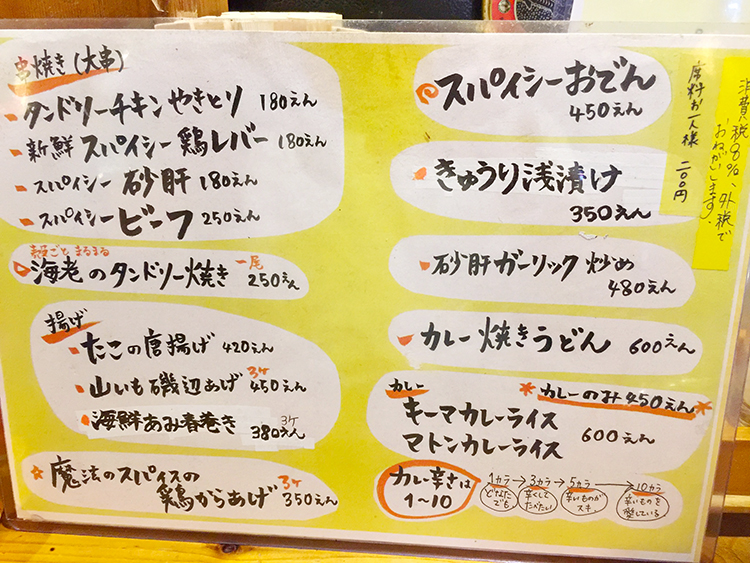 串焼き(大串)
タンドリーチキンやきとり 180えん
新鮮スパイシー鶏レバー 180えん
スパイシー砂肝 180えん
スパイシービーフ 250えん
殻ごとまるまる
海老のタンドリー焼き 一尾 250えん
揚げ
たこの唐揚げ 420えん
山いも磯辺あげ 3ケ 450えん
海鮮あみ春巻き 3ケ 380えん
魔法のスパイスの
鶏からあげ 3ケ 350えん
スパイシーおでん
450えん
きゅうり浅漬け
350えん
砂肝ガーリック炒め
480えん
カレー焼きうどん 600えん
カレー
*カレーのみ450えん*
キーマカレーライス
マトンカレーライス 600えん
カレー辛さは
1~10
1カラ→3カラ→5カラ→10カラ
どなた
でも
辛くして
たべたい
辛いものが
スキ
辛いものを
愛している
席料お一人様 二〇〇円
消費税8%、外税で
おねがいします。